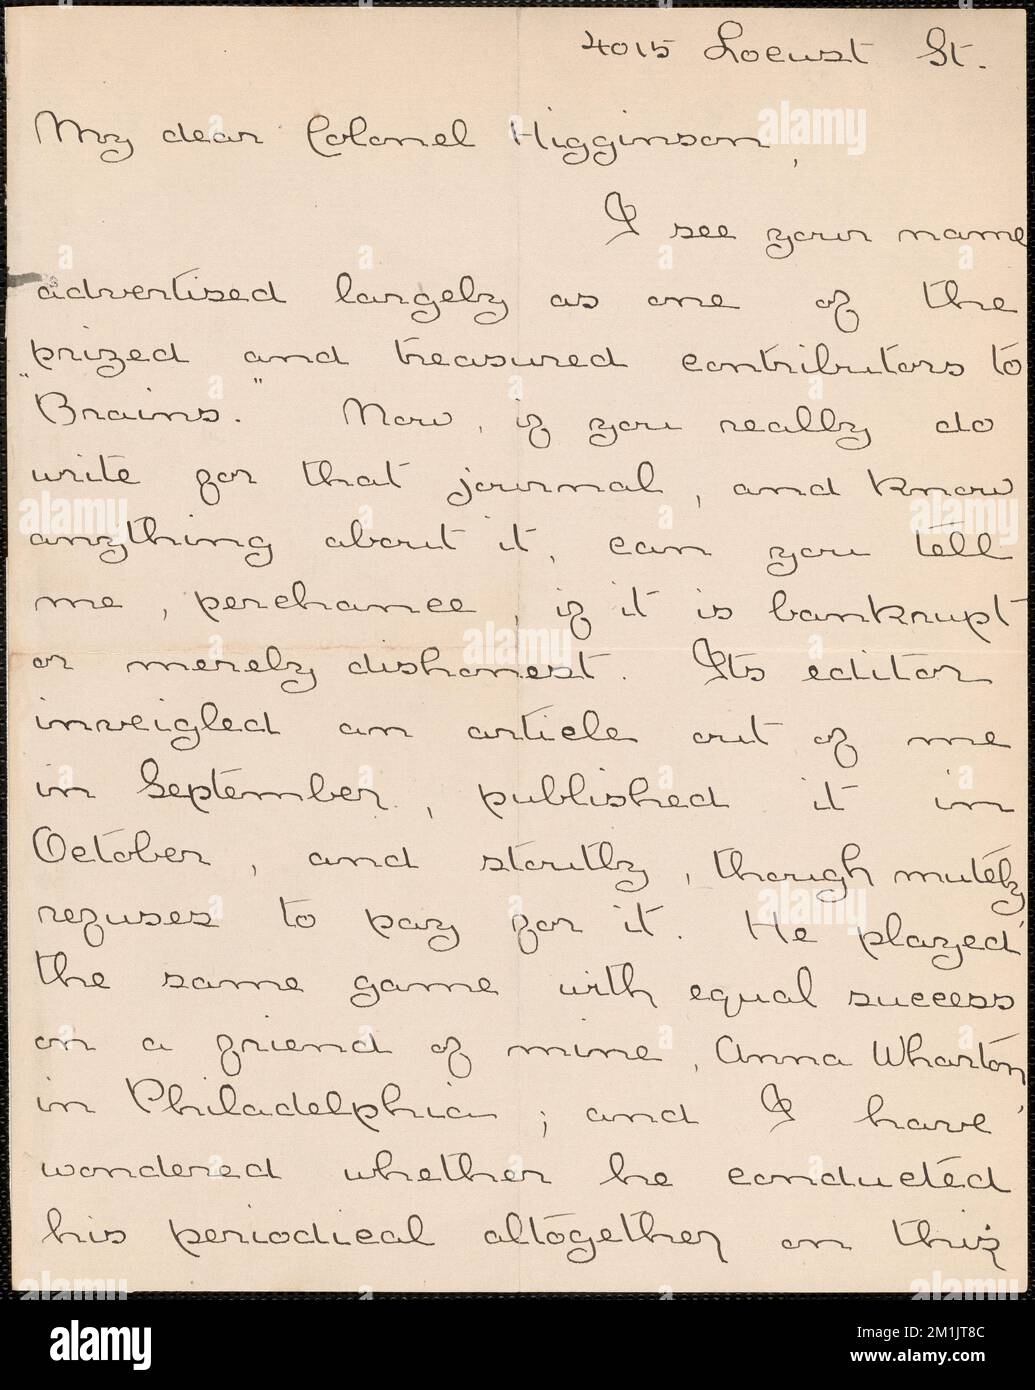 4015 Locust St.
My dear Colonel Higginson,
I see your name
advertised largely as one of the
prized and treasured contributors to
"Brains." Now, if you really do
write for that journal, and know
anything about it, can you tell
me, perchance, if it is bankrupt
or merely dishonest. Its editor
inveigled an article out of me
in September, published it in
October, and stoutly, though mutely,
refuses to pay for it. He played
the same game with equal success
on a friend of mine, Anna Wharton,
in Philadelphia; and I have
wondered whether he conducted
his periodical altogether on this
alamy
Image ID: 2M1JT8C
www.alamy.com